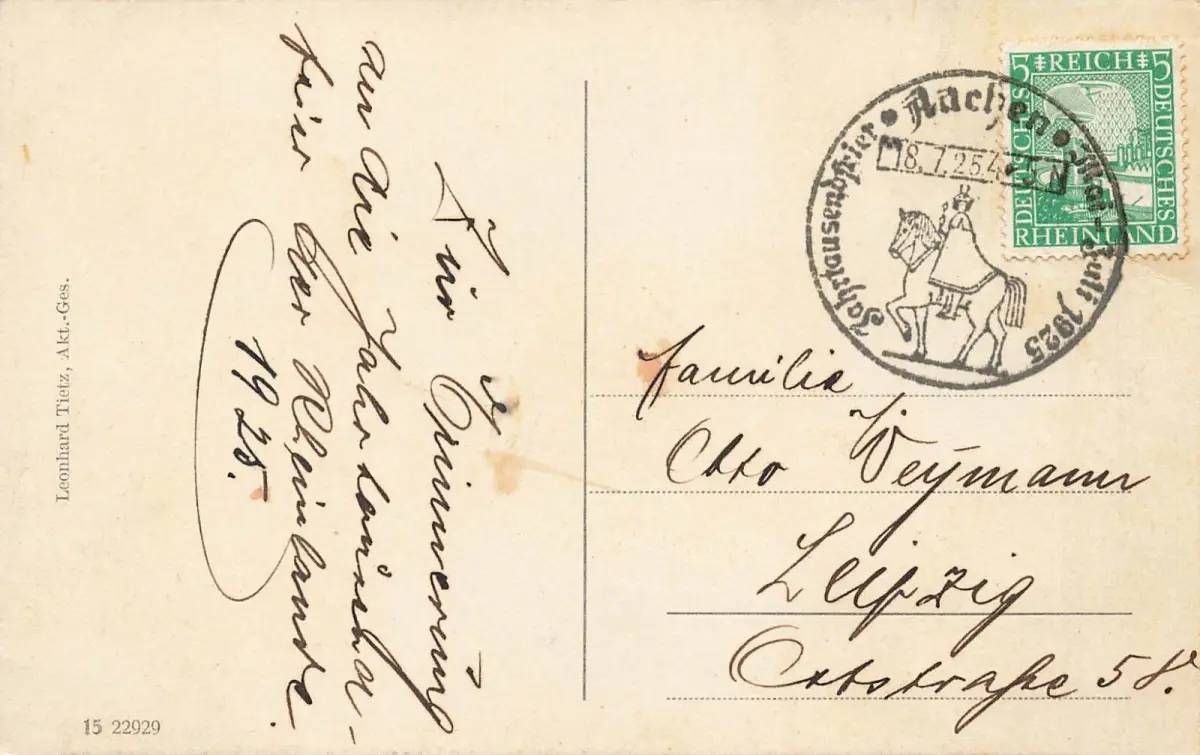 Zur Erinnerung
an die Jahrtausend-
feier der Rheinlande.
1925.
Leonhard Tietz, Akt.-Ges.
15 22929
5 REICH 5
DEUTSCHES
DEUTSCHES
RHEINLAND
Aachen • Mai-Juli 1925
Jahrtausendfeier •
18.7.25.4
Familie
Otto Weymann
Leipzig